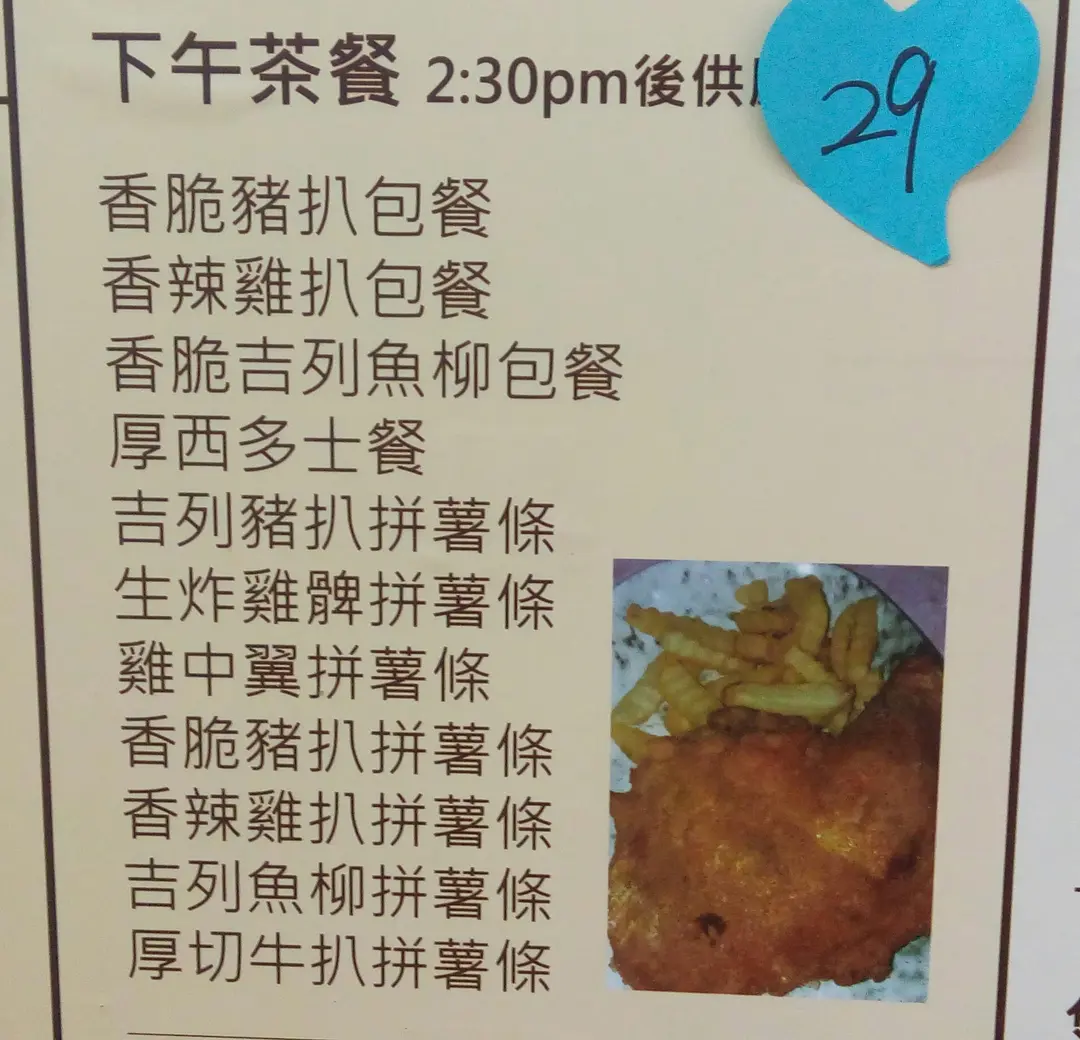 下午茶餐 2:30pm後供
29
香脆豬扒包餐
香辣雞扒包餐
香脆吉列魚柳包餐
厚西多士餐
吉列豬扒拼薯條
生炸雞髀拼薯條
雞中翼拼薯條
香脆豬扒拼薯條
香辣雞扒拼薯條
吉列魚柳拼薯條
厚切牛扒拼薯條